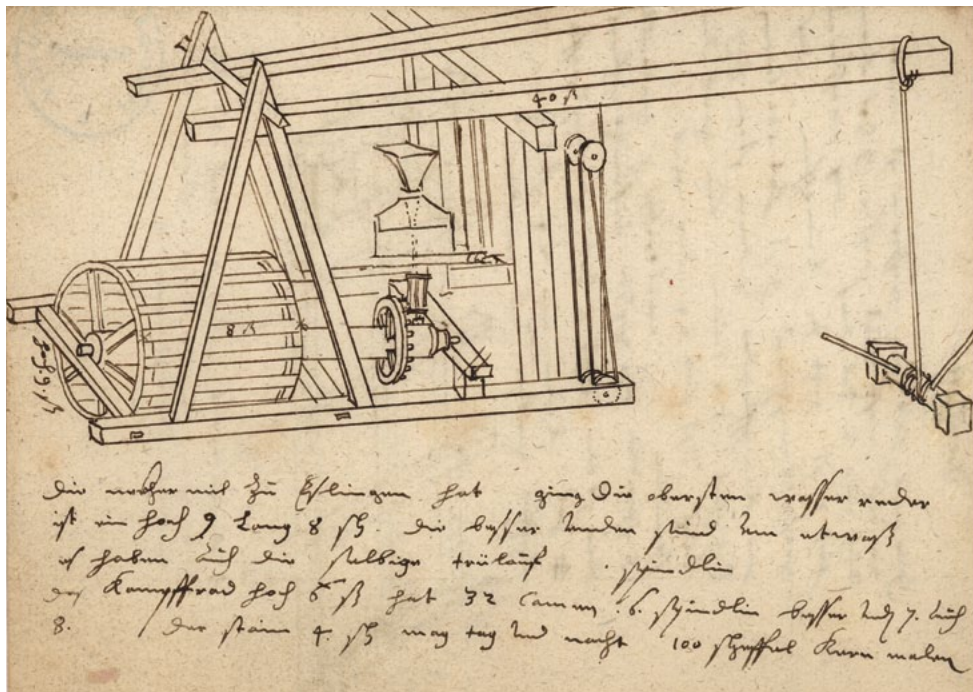 40 ß
8 ß
hoch 9 ß
Die mül zu Eslingen hat Die obersten wasser reder
ist ein hoch 9 Lang 8 sch. die besser sind umb etwas
es haben auch die selbige trilauf spindlin
das Kampffrad hoch 6 ß hat 32 Camen .6. spindlin besser 7. auch
8. Der stain 4 sch mag tag und nacht 100 scheffel Kern malen